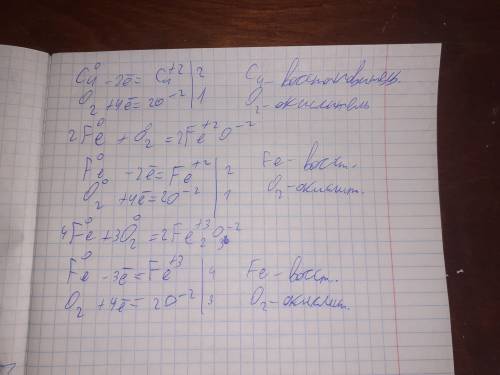 Cu⁰ - 2ē = Cu⁺² | 2 Cu - восстановитель
O₂ + 4ē = 2O⁻² | 1 O₂ - окислитель
2Fe⁰ + O₂⁰ = 2Fe⁺²O⁻²
Fe⁰ - 2ē = Fe⁺² | 2 Fe - восст.
O₂⁰ + 4ē = 2O⁻² | 1 O₂ - окислит.
4Fe⁰ + 3O₂⁰ = 2Fe₂⁺³O₃⁻²
Fe⁰ - 3ē = Fe⁺³ | 4 Fe - восст.
O₂ + 4ē = 2O⁻² | 3 O₂ - окислит.